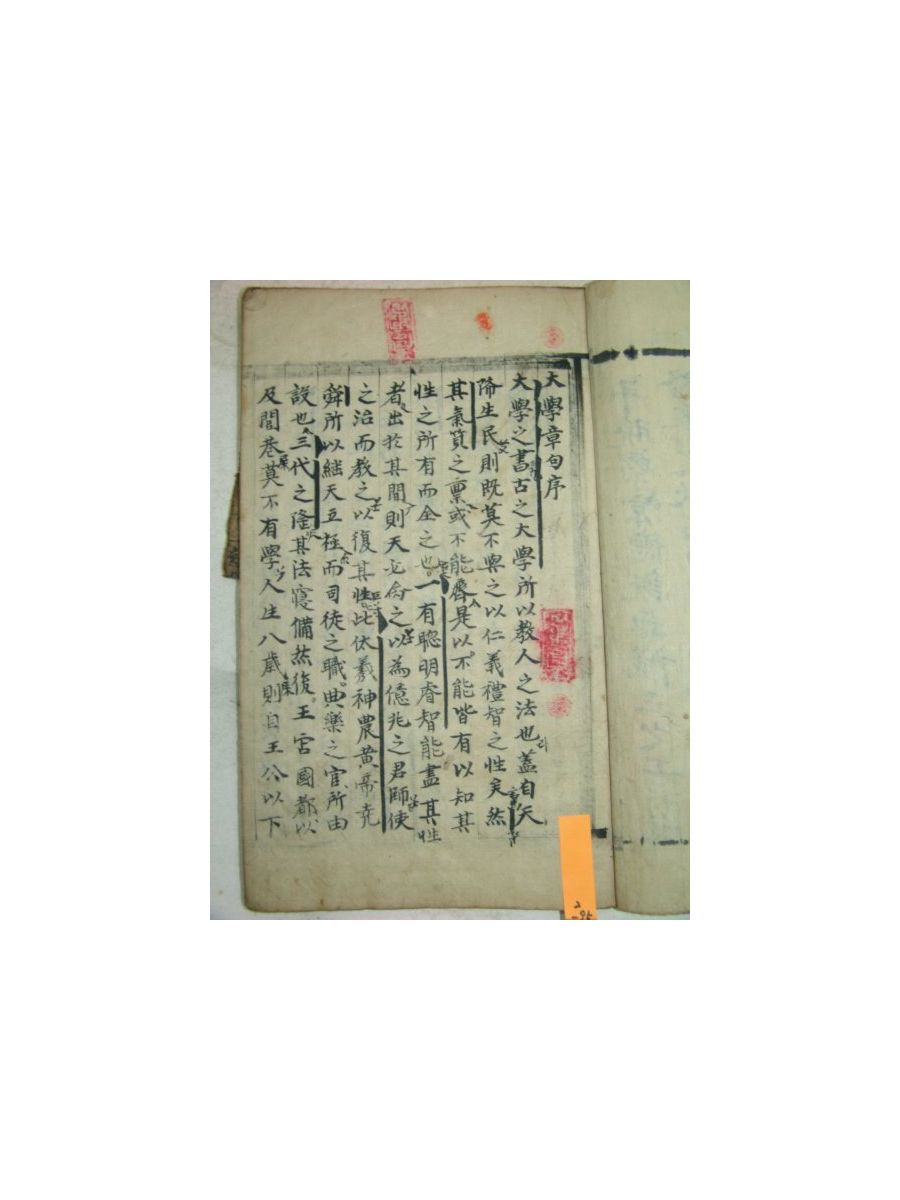 大學章句序
大學之書古之大學所以教人之法也蓋自天
降生民則既莫不與之以仁義禮智之性矣然
其氣質之稟或不能齊是以不能皆有以知其
性之所有而全之也一有聰明睿智能盡其性
者出於其間則天必命之以為億兆之君師使
之治而教之以復其性此伏羲神農黃帝堯
舜所以繼天立極而司徒之職典樂之官所由
設也三代之隆其法寖備然後王宮國都以
及閭巷莫不有學人生八歲則自王公以下